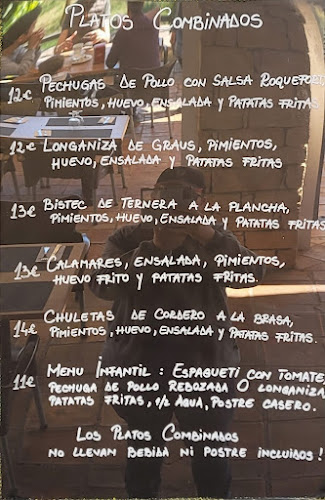 PLATOS COMBINADOS
12€ PECHUGAS DE POLLO CON SALSA ROQUEFORT,
PIMIENTOS, HUEVO, ENSALADA Y PATATAS FRITAS
12€ LONGANIZA DE GRAUS, PIMIENTOS,
HUEVO, ENSALADA Y PATATAS FRITAS
13€ BISTEC DE TERNERA A LA PLANCHA,
PIMIENTOS, HUEVO, ENSALADA Y PATATAS FRITAS
13€ CALAMARES, ENSALADA, PIMIENTOS,
HUEVO FRITO Y PATATAS FRITAS.
14€ CHULETAS DE CORDERO A LA BRASA,
PIMIENTOS, HUEVO, ENSALADA Y PATATAS FRITAS.
11€ MENU INFANTIL: ESPAGUETI CON TOMATE,
PECHUGA DE POLLO REBOZADA O LONGANIZA
PATATAS FRITAS, 1/2 AGUA, POSTRE CASERO.
LOS PLATOS COMBINADOS
NO LLEVAN BEBIDA NI POSTRE INCLUIDOS!